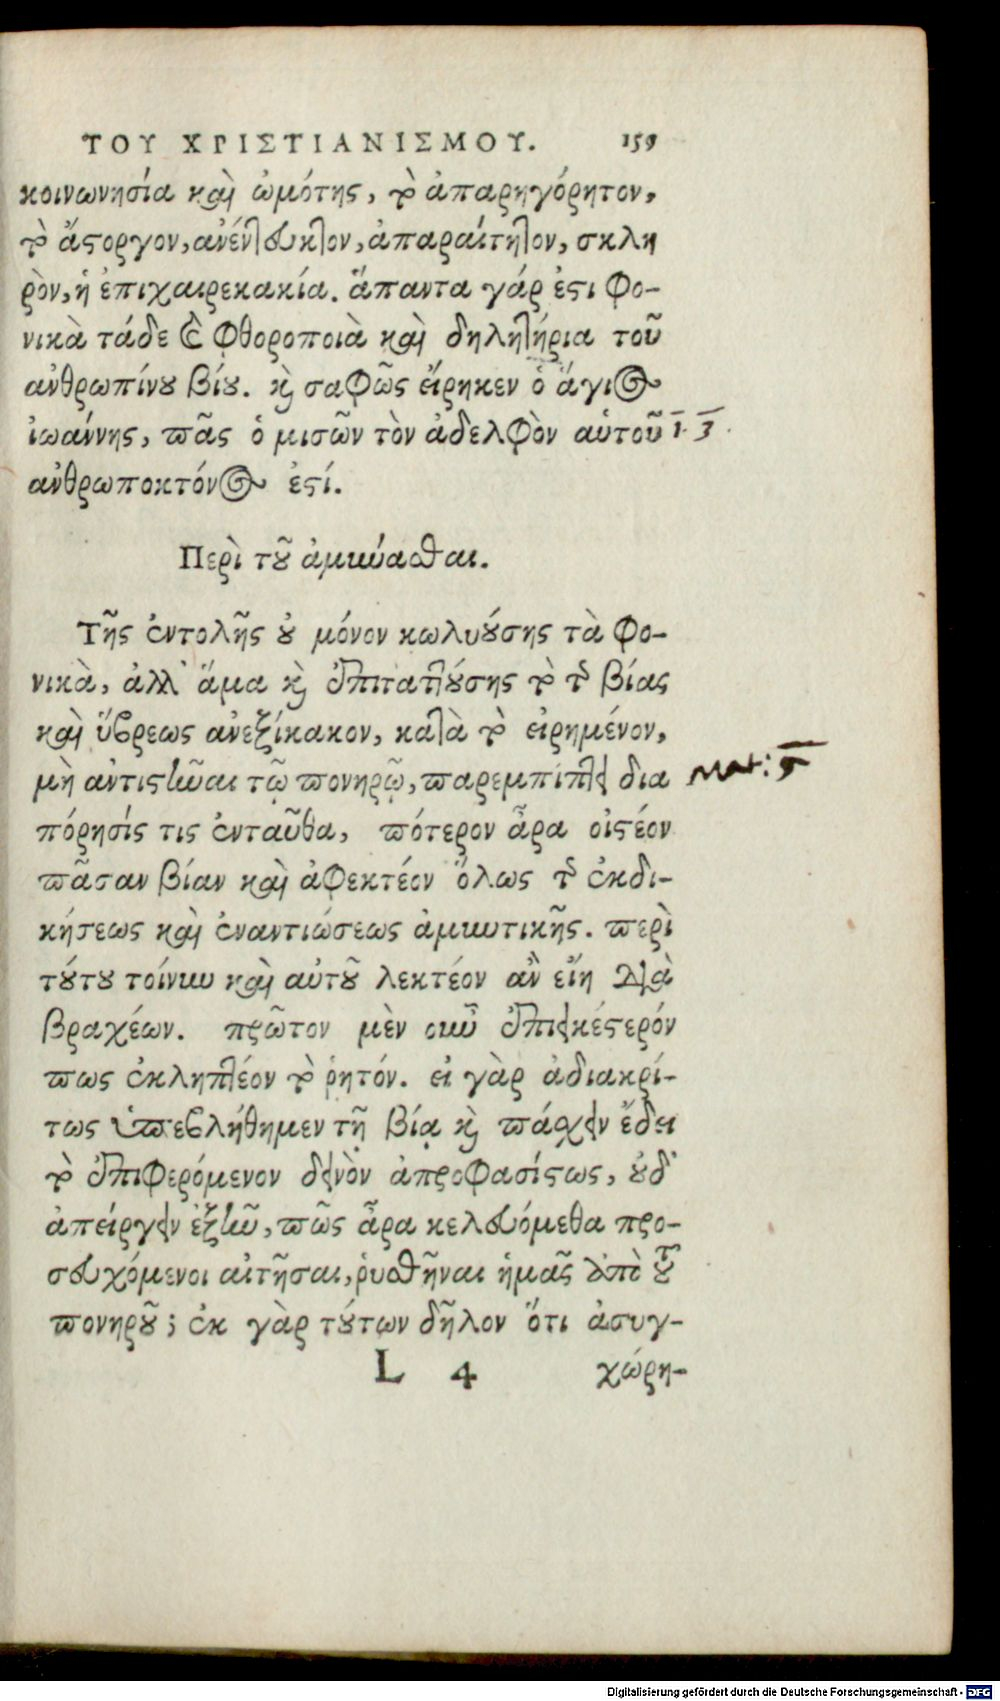 ΤΟΥ ΧΡΙΣΤΙΑΝΙΣΜΟΥ. 159
κοινωνησία καὶ ὠμότης, τὸ ἀπαρηγόρητον,
τὸ ἄϛοργον, ἀνένδυκτον, ἀπαραίτητον, σκλη
ρὸν, ἡ ἐπιχαιρεκακία. ἅπαντα γάρ ἐϛι φο-
νικὰ τάδε καὶ φθοροποιὰ καὶ δηλητήρια τοῦ
ἀνθρωπίνου βίου. καὶ σαφῶς εἴρηκεν ὁ ἅγιος
ἰωάννης, πᾶς ὁ μισῶν τὸν ἀδελφὸν αὑτοῦ 1. 3.
ἀνθρωποκτόνος ἐϛί.
Περὶ τοῦ ἀμύνασθαι.
Τῆς ἐντολῆς οὐ μόνον κωλυούσης τὰ φο-
νικὰ, ἀλλ' ἅμα καὶ ἐπιταττούσης τὸ τῆς βίας
καὶ ὕβρεως ἀνεξίκακον, κατὰ τὸ εἰρημένον,
μὴ ἀντιϛῆναι τῷ πονηρῷ, παρεμπίπτει δια Mat: 5
πόρησίς τις ἐνταῦθα, πότερον ἆρα οἰϛέον
πᾶσαν βίαν καὶ ἀφεκτέον ὅλως τῆς ἐκδι-
κήσεως καὶ ἐναντιώσεως ἀμυντικῆς. περὶ
τούτου τοίνυν καὶ αὐτοῦ λεκτέον ἂν εἴη διὰ
βραχέων. πρῶτον μὲν οὖν ἐπιεικέϛερόν
πως ἐκληπτέον τὸ ῥητόν. εἰ γὰρ ἀδιακρί-
τως ὑπεβλήθημεν τῇ βίᾳ καὶ πάσχειν ἔδει
τὸ ἐπιφερόμενον δεινὸν ἀπροφασίϛως, οὐδ'
ἀπείργειν ἐξῆν, πῶς ἆρα κελευόμεθα προ-
σευχόμενοι αἰτῆσαι, ῥυσθῆναι ἡμᾶς ἀπὸ τοῦ
πονηροῦ; ἐκ γὰρ τούτων δῆλον ὅτι ἀσυγ-
L 4 χώρη-
Digitalisierung gefördert durch die Deutsche Forschungsgemeinschaft - DFG